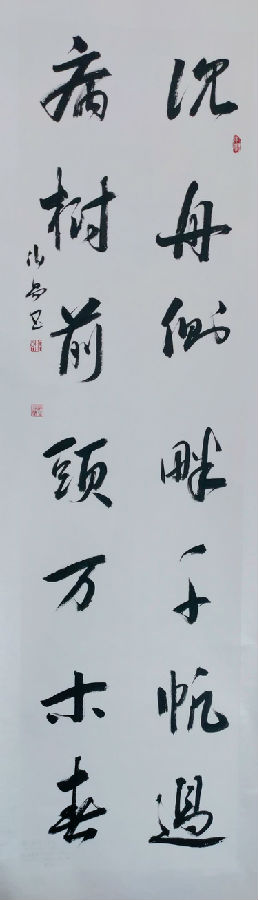 沉舟側畔千帆過
病樹前頭万木春